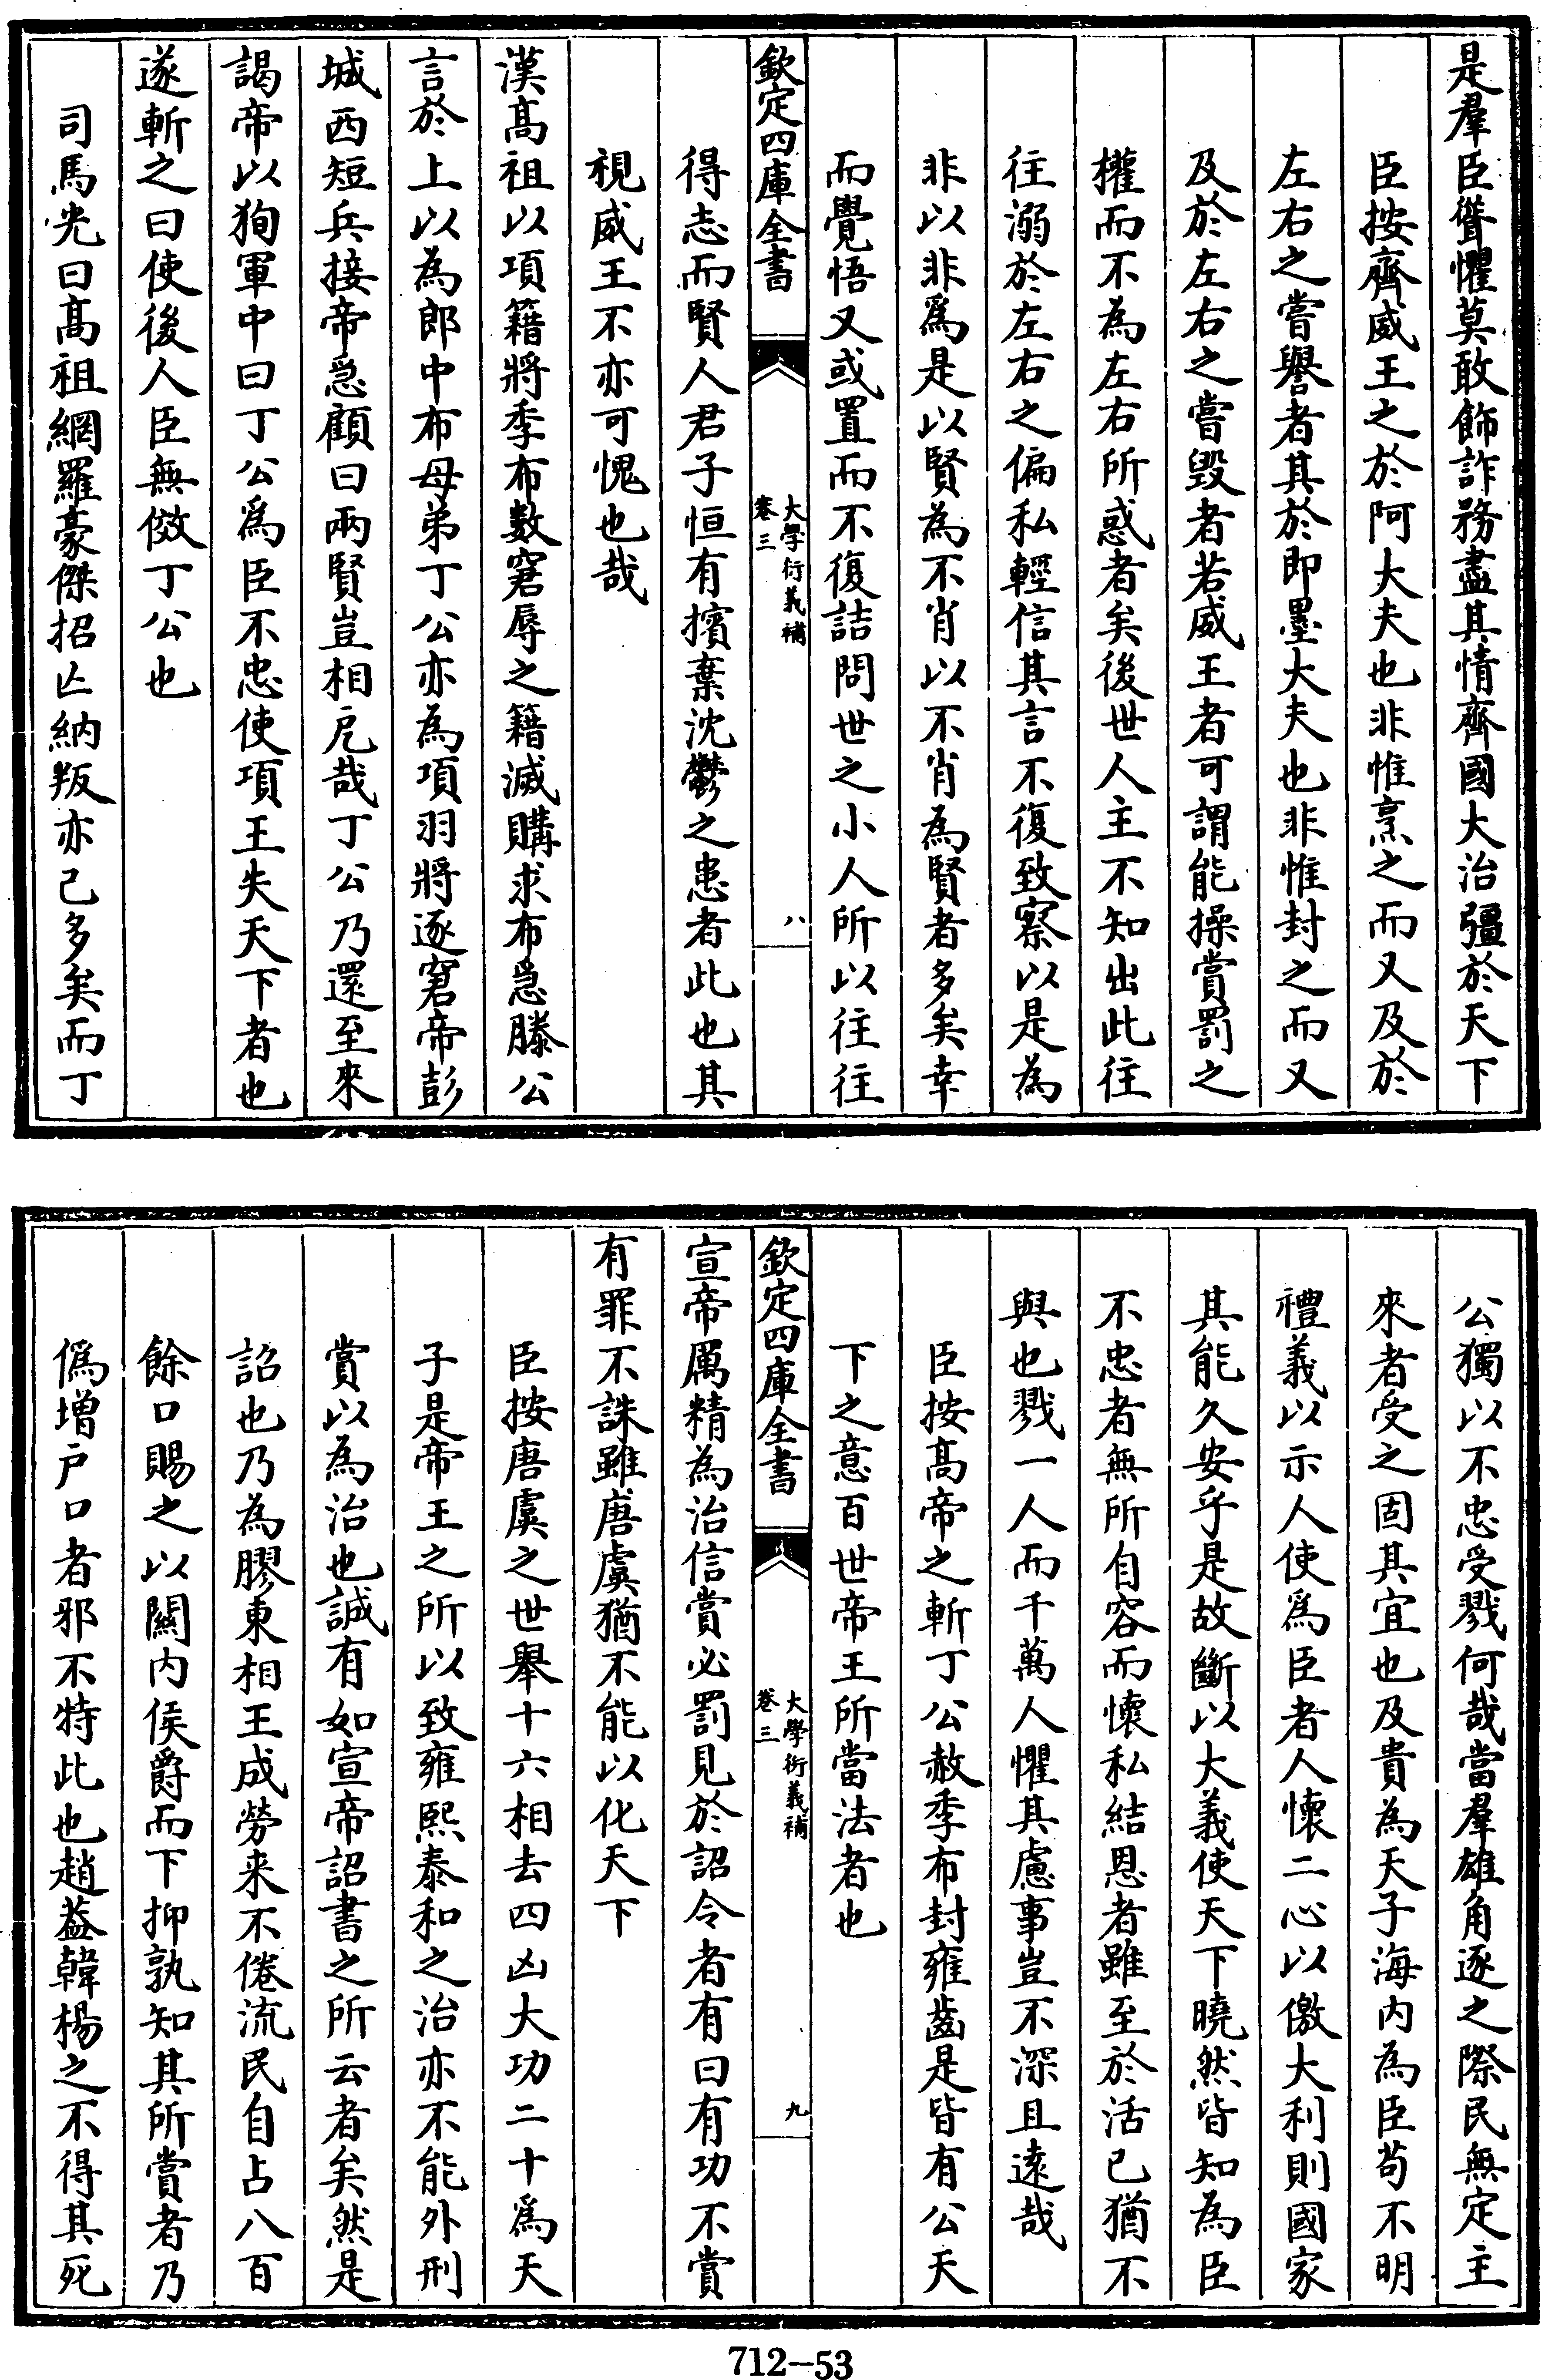 是羣臣聳懼莫敢飾詐務盡其情齊國大治彊於天下
臣按齊威王之於阿大夫也非惟烹之而又及於
左右之嘗譽者其於即墨大夫也非惟封之而又
及於左右之嘗毀者若威王者可謂能操賞罰之
權而不為左右所惑者矣後世人主不知出此往
往溺於左右之偏私輕信其言不復致察以是為
非以非爲是以賢為不肖以不肖為賢者多矣幸
而覺悟又或置而不復詰問世之小人所以往往
欽定四庫全書
大學衍義補
卷三
八
得志而賢人君子恒有擯棄沈鬱之患者此也其
視威王不亦可愧也哉
漢髙祖以項籍將季布數窘辱之籍滅購求布急滕公
言於上以為郎中布母弟丁公亦為項羽將逐窘帝彭
城西短兵接帝急顧曰兩賢豈相戹哉丁公乃還至來
謁帝以狥軍中曰丁公爲臣不忠使項王失天下者也
遂斬之曰使後人臣無傚丁公也
司馬光曰髙祖網羅豪傑招亾納叛亦己多矣而丁
公獨以不忠受戮何哉當羣雄角逐之際民無定主
來者受之固其宜也及貴為天子海内為臣茍不明
禮義以示人使爲臣者人懷二心以儌大利則國家
其能久安乎是故斷以大義使天下曉然皆知為臣
不忠者無所自容而懷私結恩者雖至於活已猶不
與也戮一人而千萬人懼其慮事豈不深且遠哉
臣按髙帝之斬丁公赦季布封雍齒是皆有公天
下之意百世帝王所當法者也
欽定四庫全書
大學衍義補
卷三
九
宣帝厲精為治信賞必罰見於詔令者有曰有功不賞
有罪不誅雖唐虞猶不能以化天下
臣按唐虞之世舉十六相去四凶大功二十爲天
子是帝王之所以致雍熙泰和之治亦不能外刑
賞以為治也誠有如宣帝詔書之所云者矣然是
詔也乃為膠東相王成勞来不倦流民自占八百
餘口賜之以關内侯爵而下抑孰知其所賞者乃
僞增户口者邪不特此也趙葢韓楊之不得其死
712-53